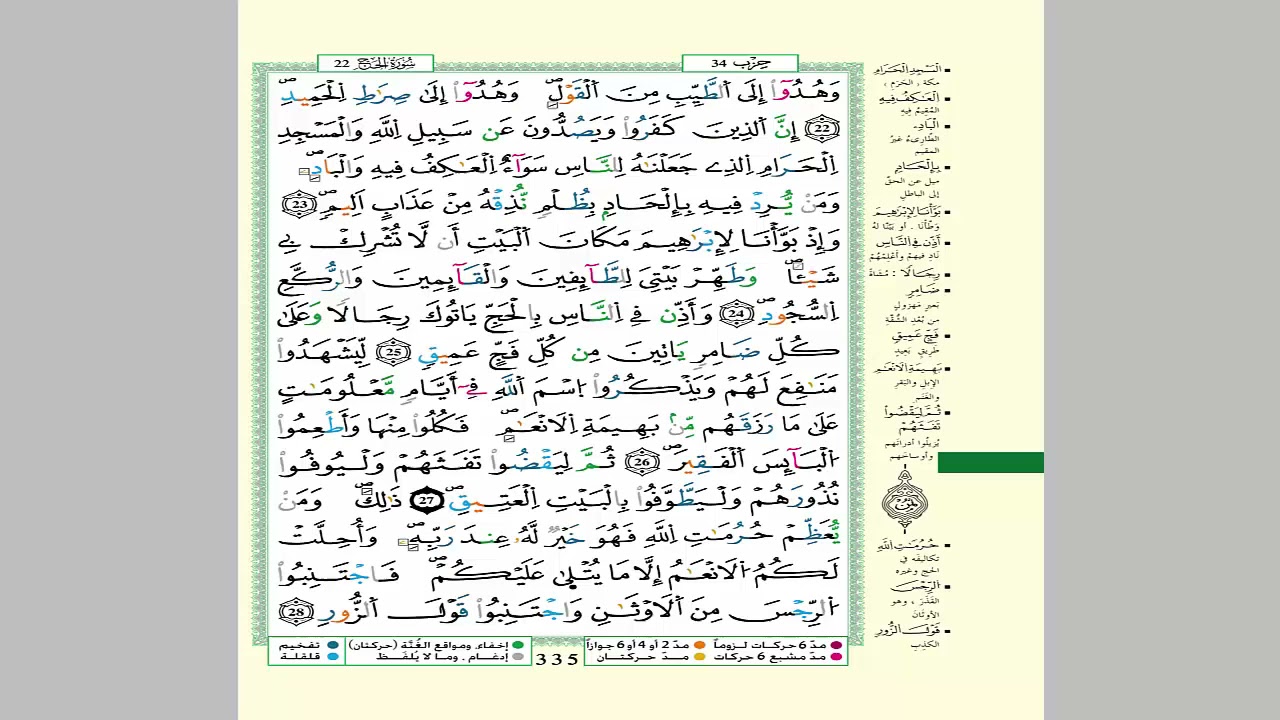 سُورَةُ الحَجِّ 22
حِزْب 34
وَهُدُوٓاْ إِلَى اَ۬لطَّيِّبِ مِنَ اَ۬لْقَوْلِۖ وَهُدُوٓاْ إِلَىٰ صِرَٰطِ اِ۬لْحَمِيدِۖ
22 إِنَّ اَ۬لذِينَ كَفَرُواْ وَيَصُدُّونَ عَن سَبِيلِ اِ۬للَّهِ وَالْمَسْجِدِ
اِ۬لْحَرَامِ اِ۬لذِے جَعَلْنَٰهُ لِلنَّاسِ سَوَآءٌ اُ۬لْعَٰكِفُ فِيهِ وَالْبَادِۦۖ
وَمَنْ يُّرِدْ فِيهِ بِإِلْحَادِۢ بِظُلْمٖ نُّذِقْهُ مِنْ عَذَابٍ اَلِيمٖۖ 23
وَإِذْ بَوَّأْنَا لِإِبْرَٰهِيمَ مَكَانَ اَ۬لْبَيْتِ أَن لَّا تُشْرِكْ بِے
شَيْـٔاٗۖ وَطَهِّرْ بَيْتِيَ لِلطَّآئِفِينَ وَالْقَآئِمِينَ وَالرُّكَّعِ
اِ۬لسُّجُودِۖ 24 وَأَذِّن فِے اِ۬لنَّاسِ بِالْحَجِّ يَاتُوكَ رِجَالاٗ وَعَلَىٰ
كُلِّ ضَامِرٖ يَاتِينَ مِن كُلِّ فَجٍّ عَمِيقٖ 25 لِّيَشْهَدُواْ
مَنَٰفِعَ لَهُمْ وَيَذْكُرُواْ اُ۪سْمَ اَ۬للَّهِ فِےٓ أَيَّامٖ مَّعْلُومَٰتٍ
عَلَىٰ مَا رَزَقَهُم مِّنۢ بَهِيمَةِ اِ۬لَانْعَٰمِۖ فَكُلُواْ مِنْهَا وَأَطْعِمُواْ
اُ۬لْبَآئِسَ اَ۬لْفَقِيرَۖ 26 ثُمَّ لِيَقْضُواْ تَفَثَهُمْ وَلْيُوفُواْ
نُذُورَهُمْ وَلْيَطَّوَّفُواْ بِالْبَيْتِ اِ۬لْعَتِيقِۖ 27 ذَٰلِكَۖ وَمَنْ
يُّعَظِّمْ حُرُمَٰتِ اِ۬للَّهِ فَهُوَ خَيْرٞ لَّهُۥ عِندَ رَبِّهِۦۖ وَأُحِلَّتْ
لَكُمُ اُ۬لَانْعَٰمُ إِلَّا مَا يُتْلَىٰ عَلَيْكُمْۖ فَاجْتَنِبُواْ
اُ۬لرِّجْسَ مِنَ اَ۬لَاوْثَٰنِ وَاجْتَنِبُواْ قَوْلَ اَ۬لزُّورِ 28
الْمَسْجِدِ الْحَرَامِ
مكة (الحرم)
الْعَٰكِفُ فِيهِ
المُقِيمُ فِيهِ
الْبَادِ
الطَّارِىءُ غيرُ
المقيم
بِإِلْحَادٍ
ميل عن الحقّ
إلى الباطل
بَوَّأْنَا لِإِبْرَٰهِيمَ
وَطَّأنا . أو بَيَّنا لهُ
أَذِّن فِي النَّاسِ
نَادِ فيهمْ وأعلِمْهُمْ
رِجَالًا : مُشاةً
ضَامِرٍ
بَعيرٍ مَهزولٍ
من بُعْدِ الشُّقّة
فَجٍّ عَمِيقٍ
طريقٍ بَعيدٍ
بَهِيمَةِ الَانْعَٰمِ
الإبل والبَقرِ
والغَنَم
ثُمَّ لِيَقْضُواْ
تَفَثَهُمْ
يُزيلُوا أدرانَهم
وأوساخَهم
ثمن
حُرُمَٰتِ اللَّهِ
تكاليفه في
الحج وغيره
الرِّجْسَ
القَذَرَ ، وهو
الأوثان
قَوْلَ الزُّورِ
الكَذِبِ
مدّ 6 حركات لـزوماً مدّ 2 أو 4 أو 6 جوازاً
مدّ مشبع 6 حركات مـدّ حـركتـان
335
إخفاء، ومواقع الغُنَّة (حركتان) تفخيم
إدغـام ، ومـا لا يُلفـظ قلقلـة